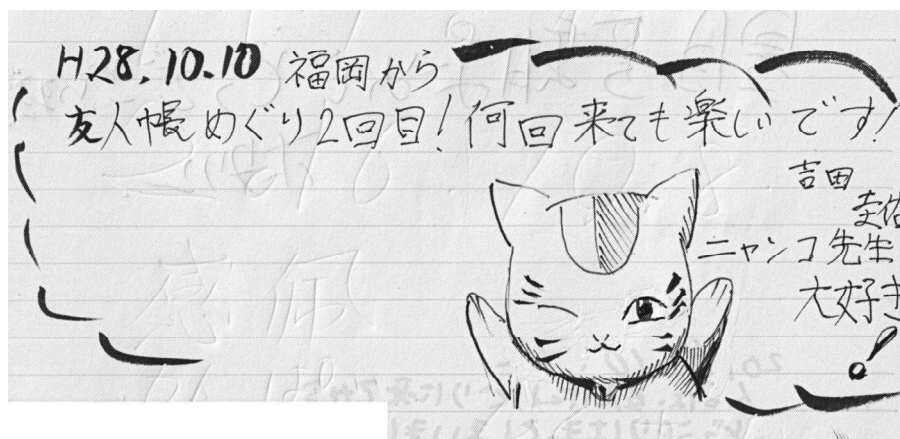 H28.10.10 福岡から
友人帳めぐり2回目!何回来ても楽しいです!
吉田
圭佑
ニャンコ先生
大好き
!